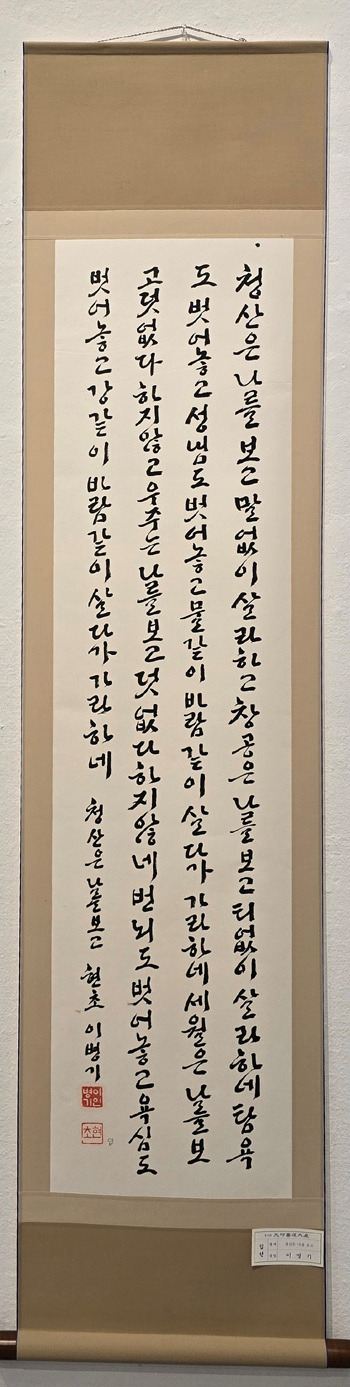 청산은 나를 보고 말없이 살라하고 창공은 나를 보고 티없이 살라하네 탐욕
도 벗어놓고 성냄도 벗어놓고 물같이 바람같이 살다가 가라하네 세월은 나를 보
고 덧없다 하지않고 우주는 나를 보고 덧없다 하지않네 번뇌도 벗어놓고 욕심도
벗어놓고 강같이 바람같이 살다가 가라하네
청산은 나를 보고 현초 이병기
이병기
현초
입선
이병기